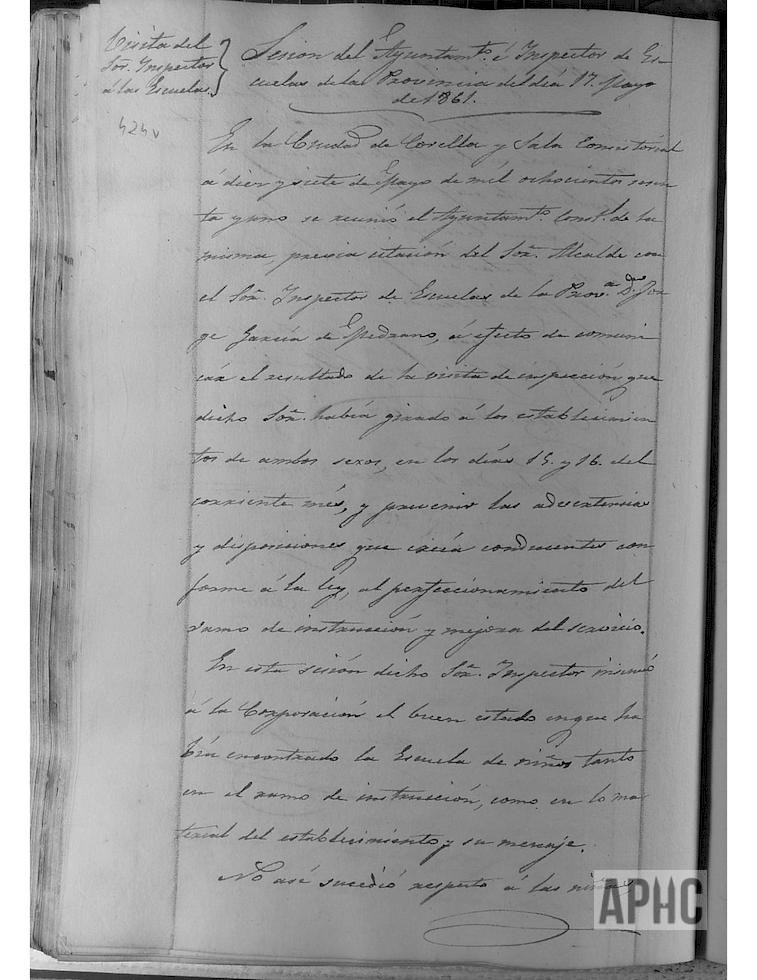 Visita del
Sor. Inspector
á las Escuelas.
424v
Sesion del Ayuntamto. é Inspector de Es-
cuelas de la Provincia del dia 17. Mayo
de 1861.
En la Ciudad de Corella y Sala Consistorial
á diez y siete de Mayo de mil ochocientos sesen
ta y uno se reunió el Ayuntamto. Constl. de la
misma, previa citación del Sor. Alcalde con
el Sor. Inspector de Escuelas de la Prova. Dn. Jor
ge Garcia de Medrano, á efecto de comuni
car el resultado de la visita de inspección que
dicho Sor. habia girado á los establecimien
tos de ambos sexos, en los dias 15. y 16. del
corriente més, y prevenir las advertencias
y disposiciones que creia conducentes con
forme á la ley, al perfeccionamiento del
ramo de instrucción y mejora del servicio.
En esta sesión dicho Sor. Inspector
á la Corporación el buen estado en que ha
bia encontrado la Escuela de niños tanto
en el ramo de instrucción, como en lo ma
terial del establecimiento y su menaje.
No asé sucedió respecto á las niñas
APHC